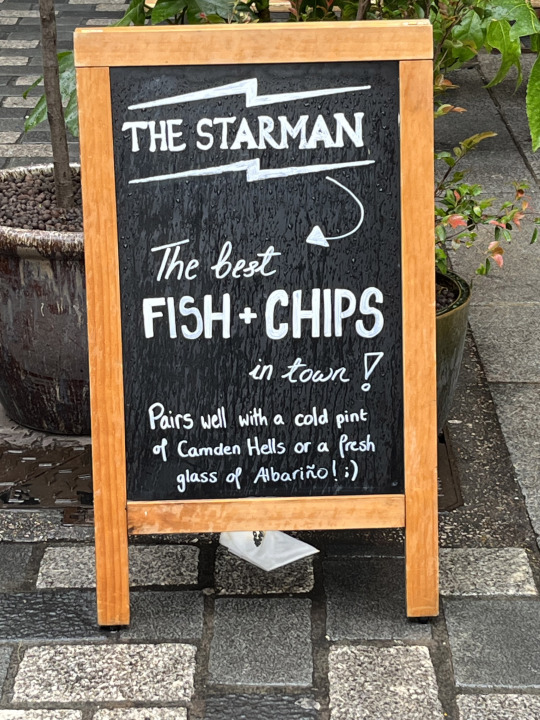 THE STARMAN
The best
FISH + CHIPS
in town!
Pairs well with a cold pint
of Camden Hells or a fresh
glass of Albariño! ;)